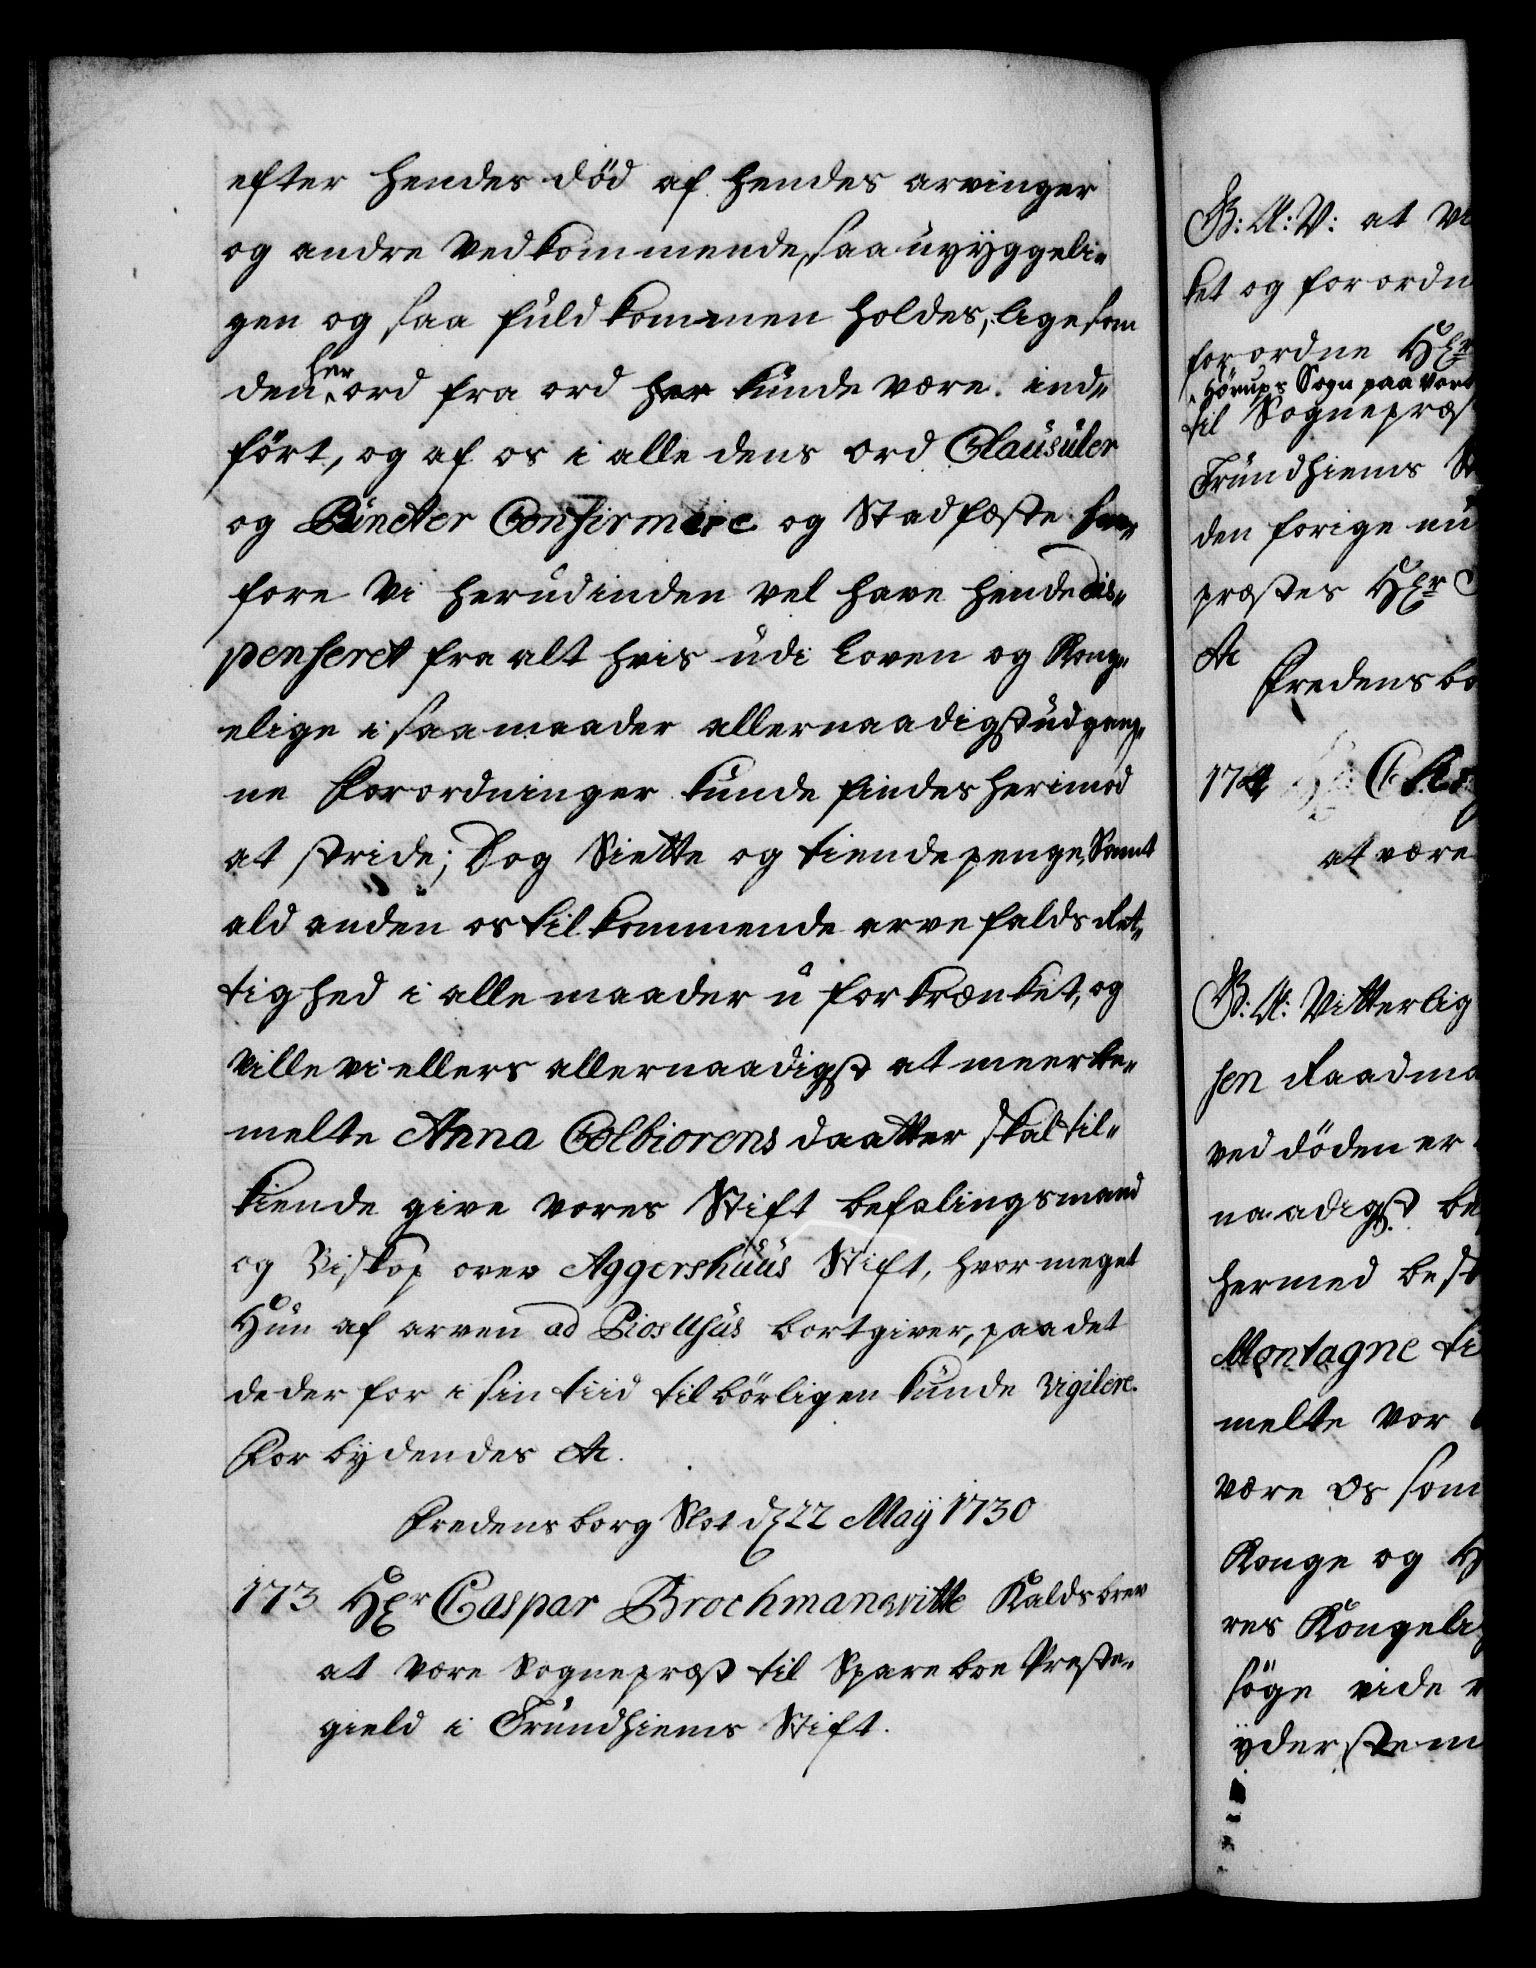 efter hendes död af hendes arvinger
og andre Vedkommende, saa uryggeli-
gen og saa fuldkommen holdes, lige som
den her ord fra ord her kunde være ind-
fört, og af os i alle dens ord Clausuler
og Puncter Confirmere og Stadfæste hvor-
fore Vi herudinden vel have hende dis-
penseret fra alt hvis udi Loven og Kong-
elige i saa maader allernaadigst udgang-
ne Forordninger kunde findes herimod
at stride; Dog Siette og tiende penge, Samt
ald anden os tilkommende arve falds Ret-
tighed i alle maader u forkrænket, og
ville vi ellers allernaadigst at meer be-
melte Anna Colbiorens daatter skal til-
kiende give vores Stift befalingsmand
og Biskop over Aggershuus Stift, hvor meget
Hun af arven ad Pios Usus bortgiver, paa det
de der for i sin tiid tilbörligen kunde vigilere.
For bydendes &c.
Fredensborg Slot d 22 Maÿ 1730
173 Hr Caspar Brochman Witte Kaldsbrev
at være Sognepræst til Spareboe Præste-
gield i Trundhiems Stift.
G: A: V: at Vi
ket og forordn
forordne Hr
Hörups Sogn paa Vort
til Sognepræs
Trundhiems St
den forige nu
præstes Hr
&c
Fredensbo
174
at være
G: A: Vitterlig
sen Raadma
ved döden er
naadigst be
hermed best
Montagne ti
melte Vor
være Os som
Konge og H
res Kongelig
söge vide
ÿderste m